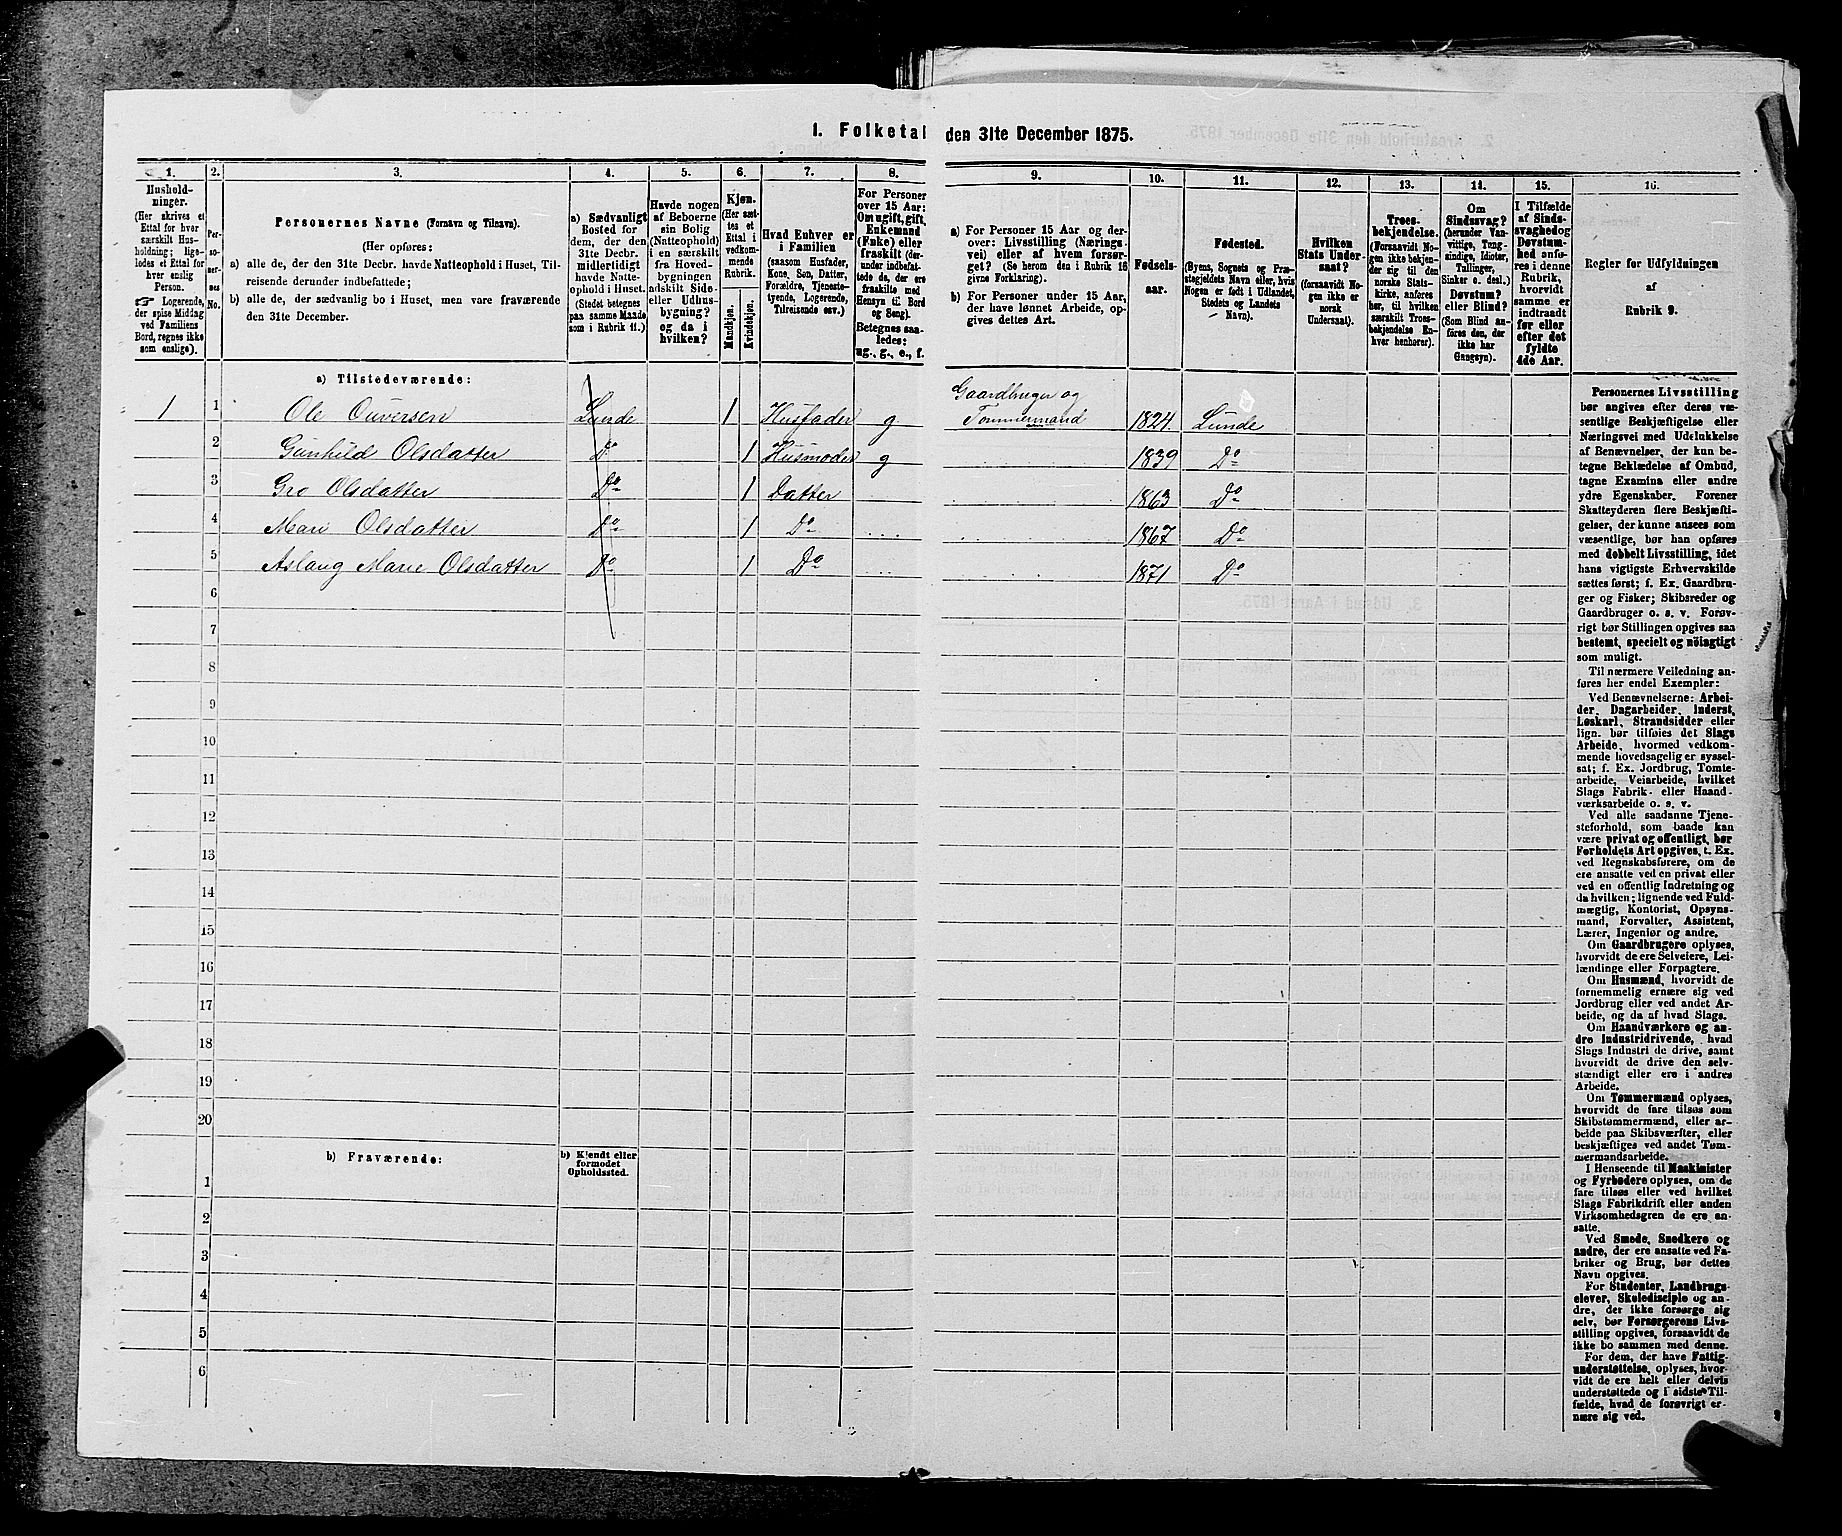 1. Folketal den 31te December 1875.
1.
2.
3.
4.
5.
6.
7.
8.
9.
10.
11.
12.
13.
14.
15.
16.
Hushold-
ninger.
(Her skrives et
Ettal for hver
særskilt Hus-
holdning; lige-
ledes et Ettal for
hver enslig
Person.
☞ Logerende,
der spise Middag
ved Familiens
Bord, regnes ikke
som enslige).
Per-
so-
ner-
nes
No.
Personernes Navne (Fornavn og Tilnavn).
(Her opføres:
a) alle de, der den 31te Decbr. havde Natteophold i Huset, Til-
reisende derunder indbefattede;
b) alle de, der sædvanlig bo i Huset, men vare fraværende
den 31te December.
a) Sædvanligt
Bosted for
dem, der den
31te Decbr.
midlertidigt
havde Natte-
ophold i Huset.
(Stedet betegnes
paa samme Maade
som i Rubrik 11.)
Havde nogen
af Beboerne
sin Bolig
(Natteophold)
i en særskilt
fra Hoved-
bygningen
adskilt Side-
eller Udhus-
bygning?
og da i
hvilken?
Kjøn.
(Her sæt-
tes et
Ettal i
vedkom-
mende
Rubrik.
Mandkjøn.
Kvindekjøn.
Hvad Enhver er
i Familien
(saasom Husfader,
Kone, Søn, Datter,
Forældre, Tjeneste-
tyende, Logerende,
Tilreisende osv.)
For Personer
over 15 Aar:
Om ugift, gift,
Enkemand
(Enke) eller
fraskilt (der-
under indbefat-
tede da, der ere
fraskilte med
Hensyn til Bord
og Seng).
Betegnes saa-
ledes:
ug., g., e., f.
a) For Personer 15 Aar og der-
over: Livsstilling (Nærings-
vei) eller af hvem forsør-
get? (Se herom den i Rubrik 16
givne Forklaring).
b) For Personer under 15 Aar,
der have lønnet Arbeide, op-
gives dettes Art.
Fødsels-
aar.
Fødested.
(Byens, Sognets og Præ-
stegjeldets Navn eller, hvis
Nogen er født i Udlandet,
Stedets og Landets
Navn).
Hvilken
Stats Under-
saat?
(forsaavidt No-
gen ikke er
norsk
Undersaat).
Troes-
bekjendelse.
(Forsaavidt No-
gen ikke bekjen-
der sig til den
norske Stats-
kirke, anføres
her, til hvilken
særskilt Troes-
bekjendelse En-
hver henhører).
Om
Sindssvag?
(herunder Van-
vittige, Tung-
sindige, Idioter,
Tullinger,
Sinker o. desl.)
Døvstum?
eller Blind?
(Som Blind an-
føres den, der
ikke har
Gangsyn).
I Tilfælde
af Sinds-
svaghed og
Døvstum-
hed anfø-
res i denne
Rubrik,
hvorvidt
samme er
indtraadt
før eller
efter det
fyldte
4de Aar.
Regler for Udfyldningen
af
Rubrik 9.
a) Tilstedeværende:
1 1 Ole Ouversen Lunde 1 Husfader g Gaardbruger og
Tømmermand 1824 Lunde
2 Gunhild Olsdatter Do 1 Husmoder g 1839 Do
3 Gro Olsdatter Do 1 Datter 1863 Do
4 Mari Olsdatter Do 1 Do 1867 Do
5 Aslaug Marie Olsdatter Do 1 Do 1871 Do
6
7
8
9
10
11
12
13
14
15
16
17
18
19
20
b) Fraværende:
b) Kjendt eller
formodet
Opholdssted.
1
2
3
4
5
6
Personernes Livsstilling
bør angives efter deres væ-
sentlige Beskjæftigelse eller
Næringsvei med Udelukkelse
af Benævnelser, der kun be-
tegne Beklædelse af Ombud,
tagne Examina eller andre
ydre Egenskaber. Forener
Skatteyderen flere Beskjæfti-
gelser, der kunne ansees som
væsentlige, bør han opføres
med dobbelt Livsstilling, idet
hans vigtigste Erhvervskilde
sættes først; f. Ex. Gaardbru-
ger og Fisker; Skibsreder og
Gaardbruger o. s. v. Forøv-
rigt bør Stillingen opgives saa
bestemt, specielt og nöiagtigt
som muligt.
Til nærmere Veiledning an-
føres her endel Exempler:
Ved Benævnelserne: Arbei-
der, Dagarbeider, Inderst,
Løskarl, Strandsidder eller
lign. bør tilføies det Slags
Arbeide, hvormed vedkom-
mende hovedsagelig er syssel-
sat; f. Ex. Jordbrug, Tomte-
arbeide, Veiarbeide, hvilket
Slags Fabrik- eller Haand-
værksarbeide o. s. v.
Ved alle saadanne Tjene-
steforhold, som baade kan
være privat og offentligt, bør
Forholdets Art opgives, t. Ex.
ved Regnskabsførere, om de
ere ansatte ved en privat eller
ved en offentlig Indretning og
da hvilken; lignende ved Fuld-
mægtig, Kontorist, Opsyns-
mand, Forvalter, Assistent,
Lærer, Ingeniør og andre.
Om Gaardbrugere oplyses,
hvorvidt de ere Selveiere, Lei-
lændinge eller Forpagtere.
Om Husmænd, hvorvidt de
fornemmelig ernære sig ved
Jordbrug eller ved andet Ar-
beide, og da af hvad Slags.
Om Haandværkere og an-
dre Industridrivende, hvad
Slags Industri de drive, samt
hvorvidt de drive den selv-
stændigt eller ere i andres
Arbeide.
Om Tømmermænd oplyses,
hvorvidt de fare tilsøs som
Skibstømmermænd, eller ar-
beide paa Skibsværfter, eller
beskjæftiges ved andet Tøm-
mermandsarbeide.
I Henseende til Maskinister
og Fyrbødere oplyses, om de
fare tilsøs eller ved hvilket
Slags Fabrikdrift eller anden
Virksomhedsgren de ere an-
satte.
Ved Smede, Snedkere og
andre, der ere ansatte ved Fa-
briker og Brug, bør dettes
Navn opgives.
For Studenter, Landbrugs-
elever, Skoledisciple og an-
dre, der ikke forsørge sig
selv, bør Forsørgerens Livs-
stilling opgives, forsaavidt de
ikke bo sammen med denne.
For dem, der have Fattig-
understøttelse, oplyses, hvor-
vidt de ere helt eller delvis
understøttede og i sidste Til-
fælde, hvad de forøvrigt er-
nære sig ved.